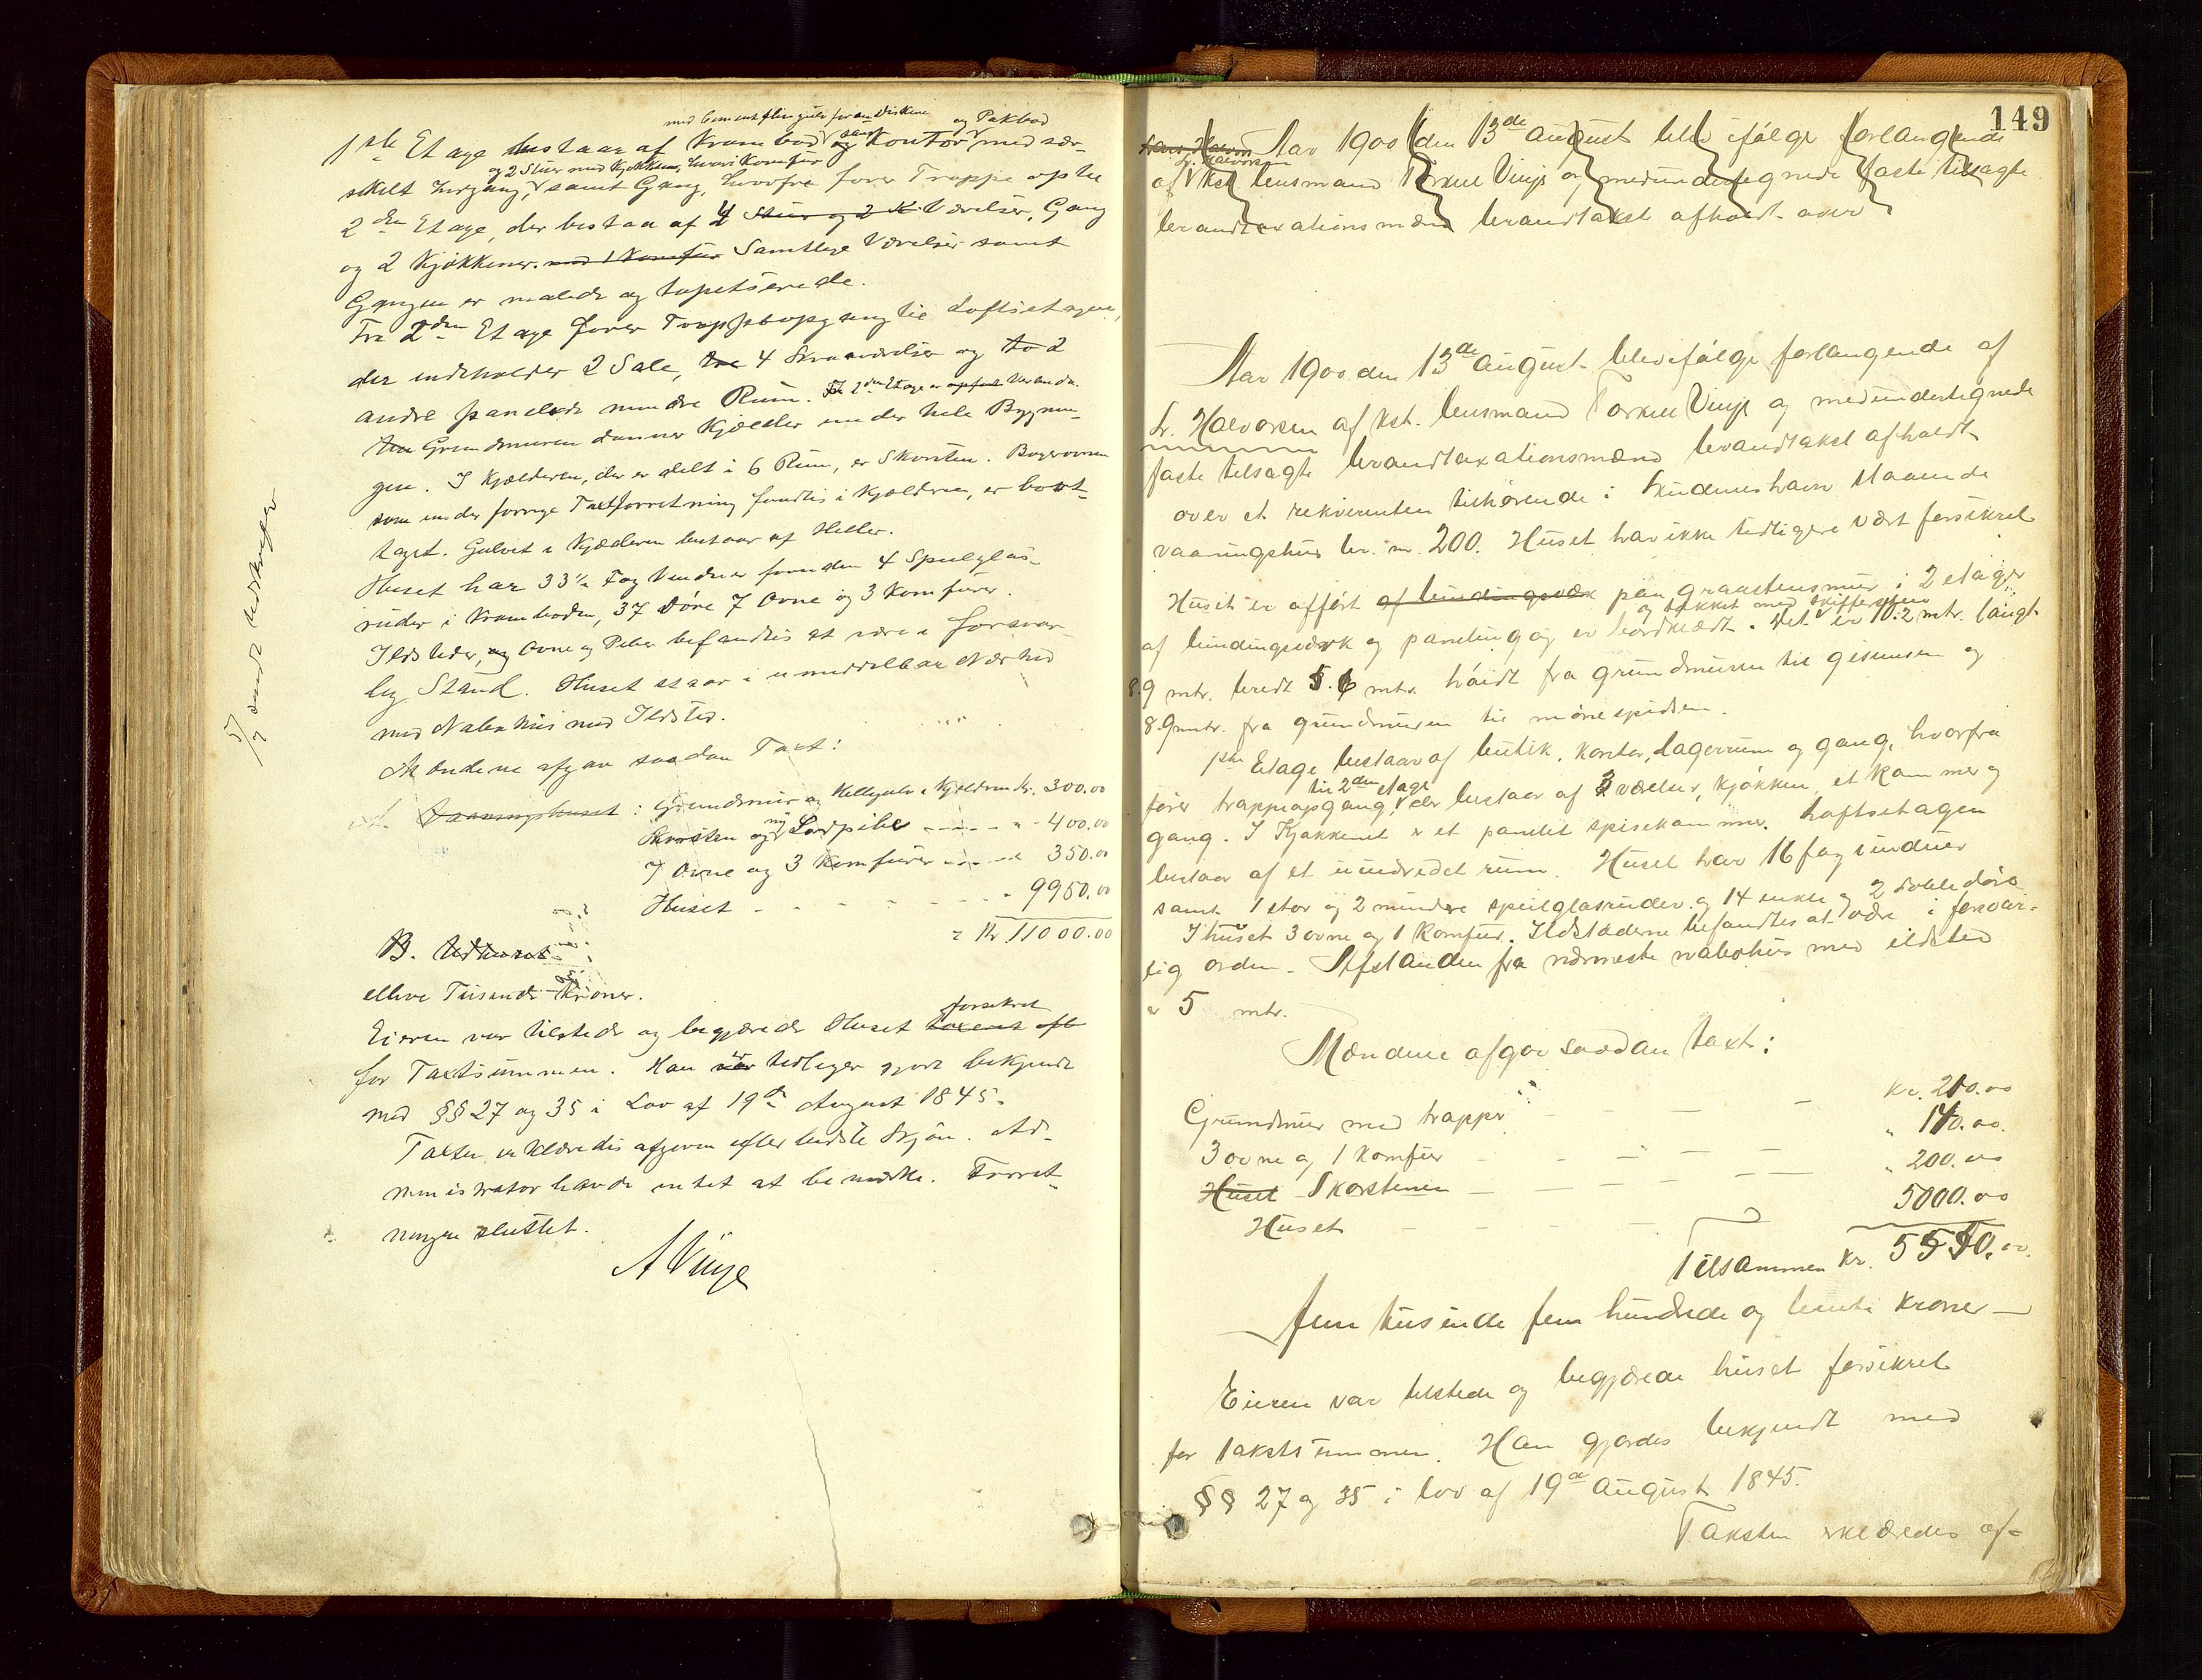 med Cement flisgulv foran Disken og Pakbod
1ste Etage bestaar af Krambod samt og Kontor med sær-
og 2 Stuer med Kjøkken, hvori Komfur
skilt Indgang, samt Gang, hvorfra fører Trappe op til
2den Etage, der bestaar af 4 Stuer og 2 K. Værelser, Gang
og 2 Kjøkkener. med 1 Komfur Samtlige Værelser samt
Gangen er malede og tapetserede.
Fra 2den Etage fører Trappeopgang til Loftsetagen,
der indeholder 2 Sale, 4 Skraaværelser og to 2
andre panelede mindre Rum. 2den Etage er Veranda.
Grundmuren danner Kjælder under hele Bygnin-
gen. I Kjælderen, der er delt i 6 Rum, er Skorsten. Bagerovnen
som under forrige Taxtforretning fandtes i Kjælderen, er bort-
taget. Gulvet i Kjælderen bestaar af Heller.
Huset har 33½ Fag Vinduer foruden 4 Speilglas-
ruder i Kramboden, 37 Døre 7 Ovne og 3 Komfurer.
Ildsteder, og Ovne og Piber befandtes at være i forsvar-
lig Stand. Huset staar i umiddelbar Nærhed
med Nabohus med Ildsted.
Mændene afgav saadan Taxt:
Vaaningshuset: Grundmur og Hellegulv i Kjælderen Kr. 300.00
Skorsten og ny Pibe - - - - 400.00
7 Ovne og 3 Komfurer - - - - 350.00
Huset - - - - - - - 9950.00
= Kr 11000.00
B. Udhuset
elleve Tusinde Kroner.
Eieren var tilstede og begjærede Huset taxeret forsikret
for Taxtsummen. Han er tidligere gjort bekjendt
med §§ 27 og 35 i Lov af 19de August 1845.
Taxten erklæredes afgiven efter bedste Skjøn. Ad-
ministrator havde intet at bemærke. Forret-
ningen sluttet.
A Vinje
5/7 sendt Udskrift
149
Aar 1900 den 13de august blev ifølge forlangende
L. Halvorsen
af kst. lensmand Torkell Vinje og medundertegnede faste tilsagte
brandtaxationsmænd brandtakst afholdt over
Aar 1900 den 13de august blev ifølge forlangende af
L. Halvorsen af kst. lensmand Torkell Vinje og medundertegnede
faste tilsagte brandtaxationsmænd brandtakst afholdt
over et rekvirenten tilhørende i Skudeneshavn staaende
vaaningshus br. nr. 200. Huset har ikke tidligere vært forsikret
Huset er opført af bindingsværk paa graastensmur i 2 etager
og tækket med skiffersten
af bindingsværk og paneling og er bordklædt. Det er 10.2 mtr. langt
8.9 mtr. bredt 5.6 mtr. høidt fra grundmuren til gesimsen og
8.9 mtr. fra grundmuren til mønespidsen.
1ste Etage bestaar af butik, kontor, lagerrum og gang, hvorfra
til 2den etage
fører trappeopgang, der bestaar af 3 værelser, kjøkken, et kammer og
gang. I Kjøkkenet er et panelet spisekammer. Loftsetagen
bestaar af et uindredet rum. Huset har 16 fag vinduer
samt 1 stor og 2 mindre speilglasruder og 14 enkle og 2 doble døre
I huset 3 ovne og 1 komfur. Ildstederne befandtes at være i forsvar-
lig orden. Afstanden fra nærmeste nabohus med ildsted
er 5 mtr.
Mændene afgav saadan taxt:
Grundmur med trappe - - - kr. 210.00
3 ovne og 1 komfur - - - " 140.00
Huset Skorstenen - - - " 200.00
Huset - - - - 5000.00
Tilsammen kr. 5550.00
fem tusinde fem hundrede og femti kroner —
Eieren var tilstede og begjærede huset forsikret
for takstsummen. Han gjordes bekjendt med
§§ 27 og 35 i lov af 19de august 1845.
Taksten erklæredes af-